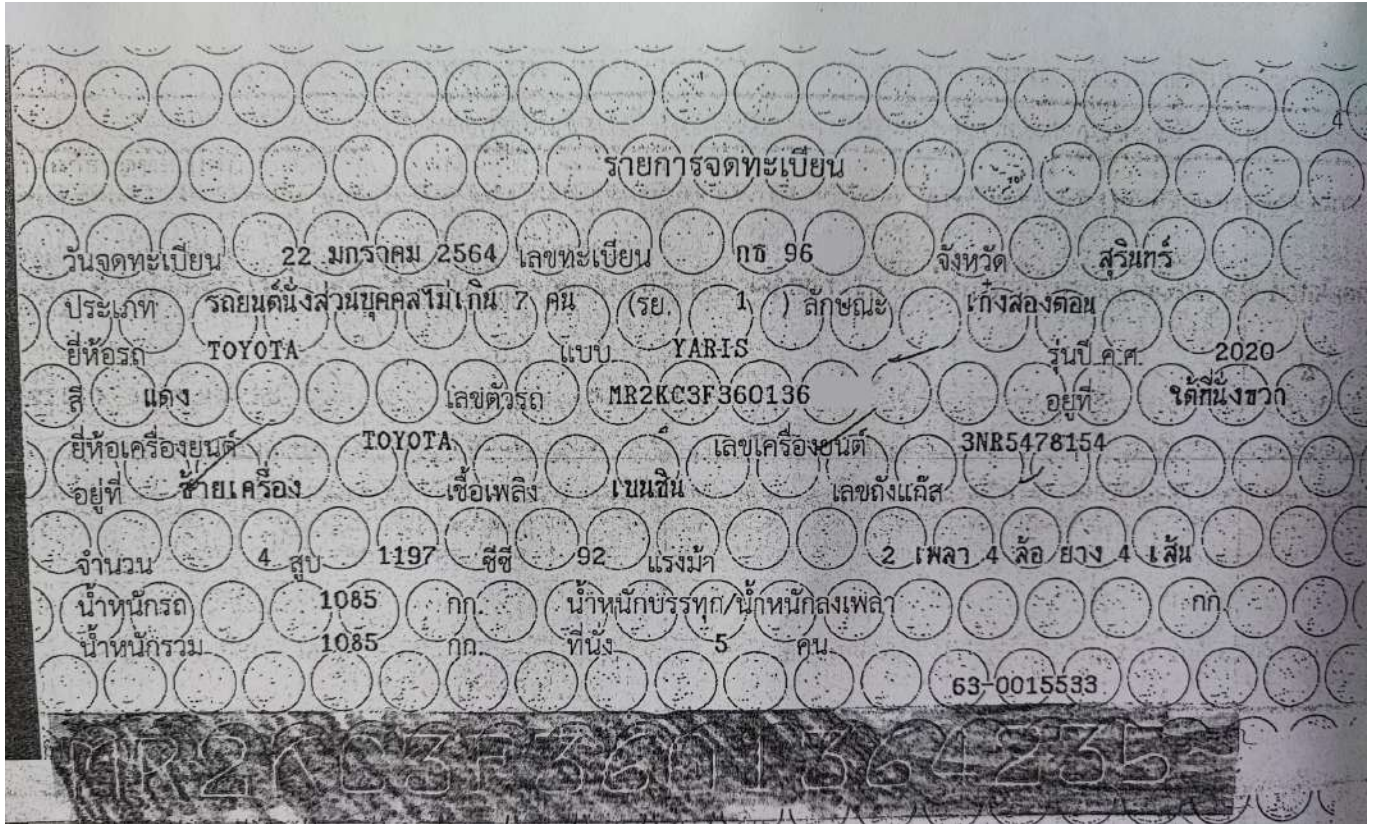 4
รายการจดทะเบียน
วันจดทะเบียน 22 มกราคม 2564 เลขทะเบียน กธ 96 จังหวัด สุรินทร์
ประเภท รถยนต์นั่งส่วนบุคคลไม่เกิน 7 คน (รย. 1 ) ลักษณะ เก๋งสองตอน
ยี่ห้อรถ TOYOTA แบบ YARIS รุ่นปี ค.ศ. 2020
สี แดง เลขตัวรถ MR2KC3F360136 อยู่ที่ ใต้ที่นั่งขวา
ยี่ห้อเครื่องยนต์ TOYOTA เลขเครื่องยนต์ 3NR5478154
อยู่ที่ ซ้ายเครื่อง เชื้อเพลิง เบนซิน เลขถังแก๊ส
จำนวน 4 สูบ 1197 ซีซี 92 แรงม้า 2 เพลา 4 ล้อ ยาง 4 เส้น
น้ำหนักรถ 1085 กก. น้ำหนักบรรทุก/น้ำหนักลงเพลา กก.
น้ำหนักรวม 1085 กก. ที่นั่ง 5 คน
63-0015533
MR2KC3F3601364235